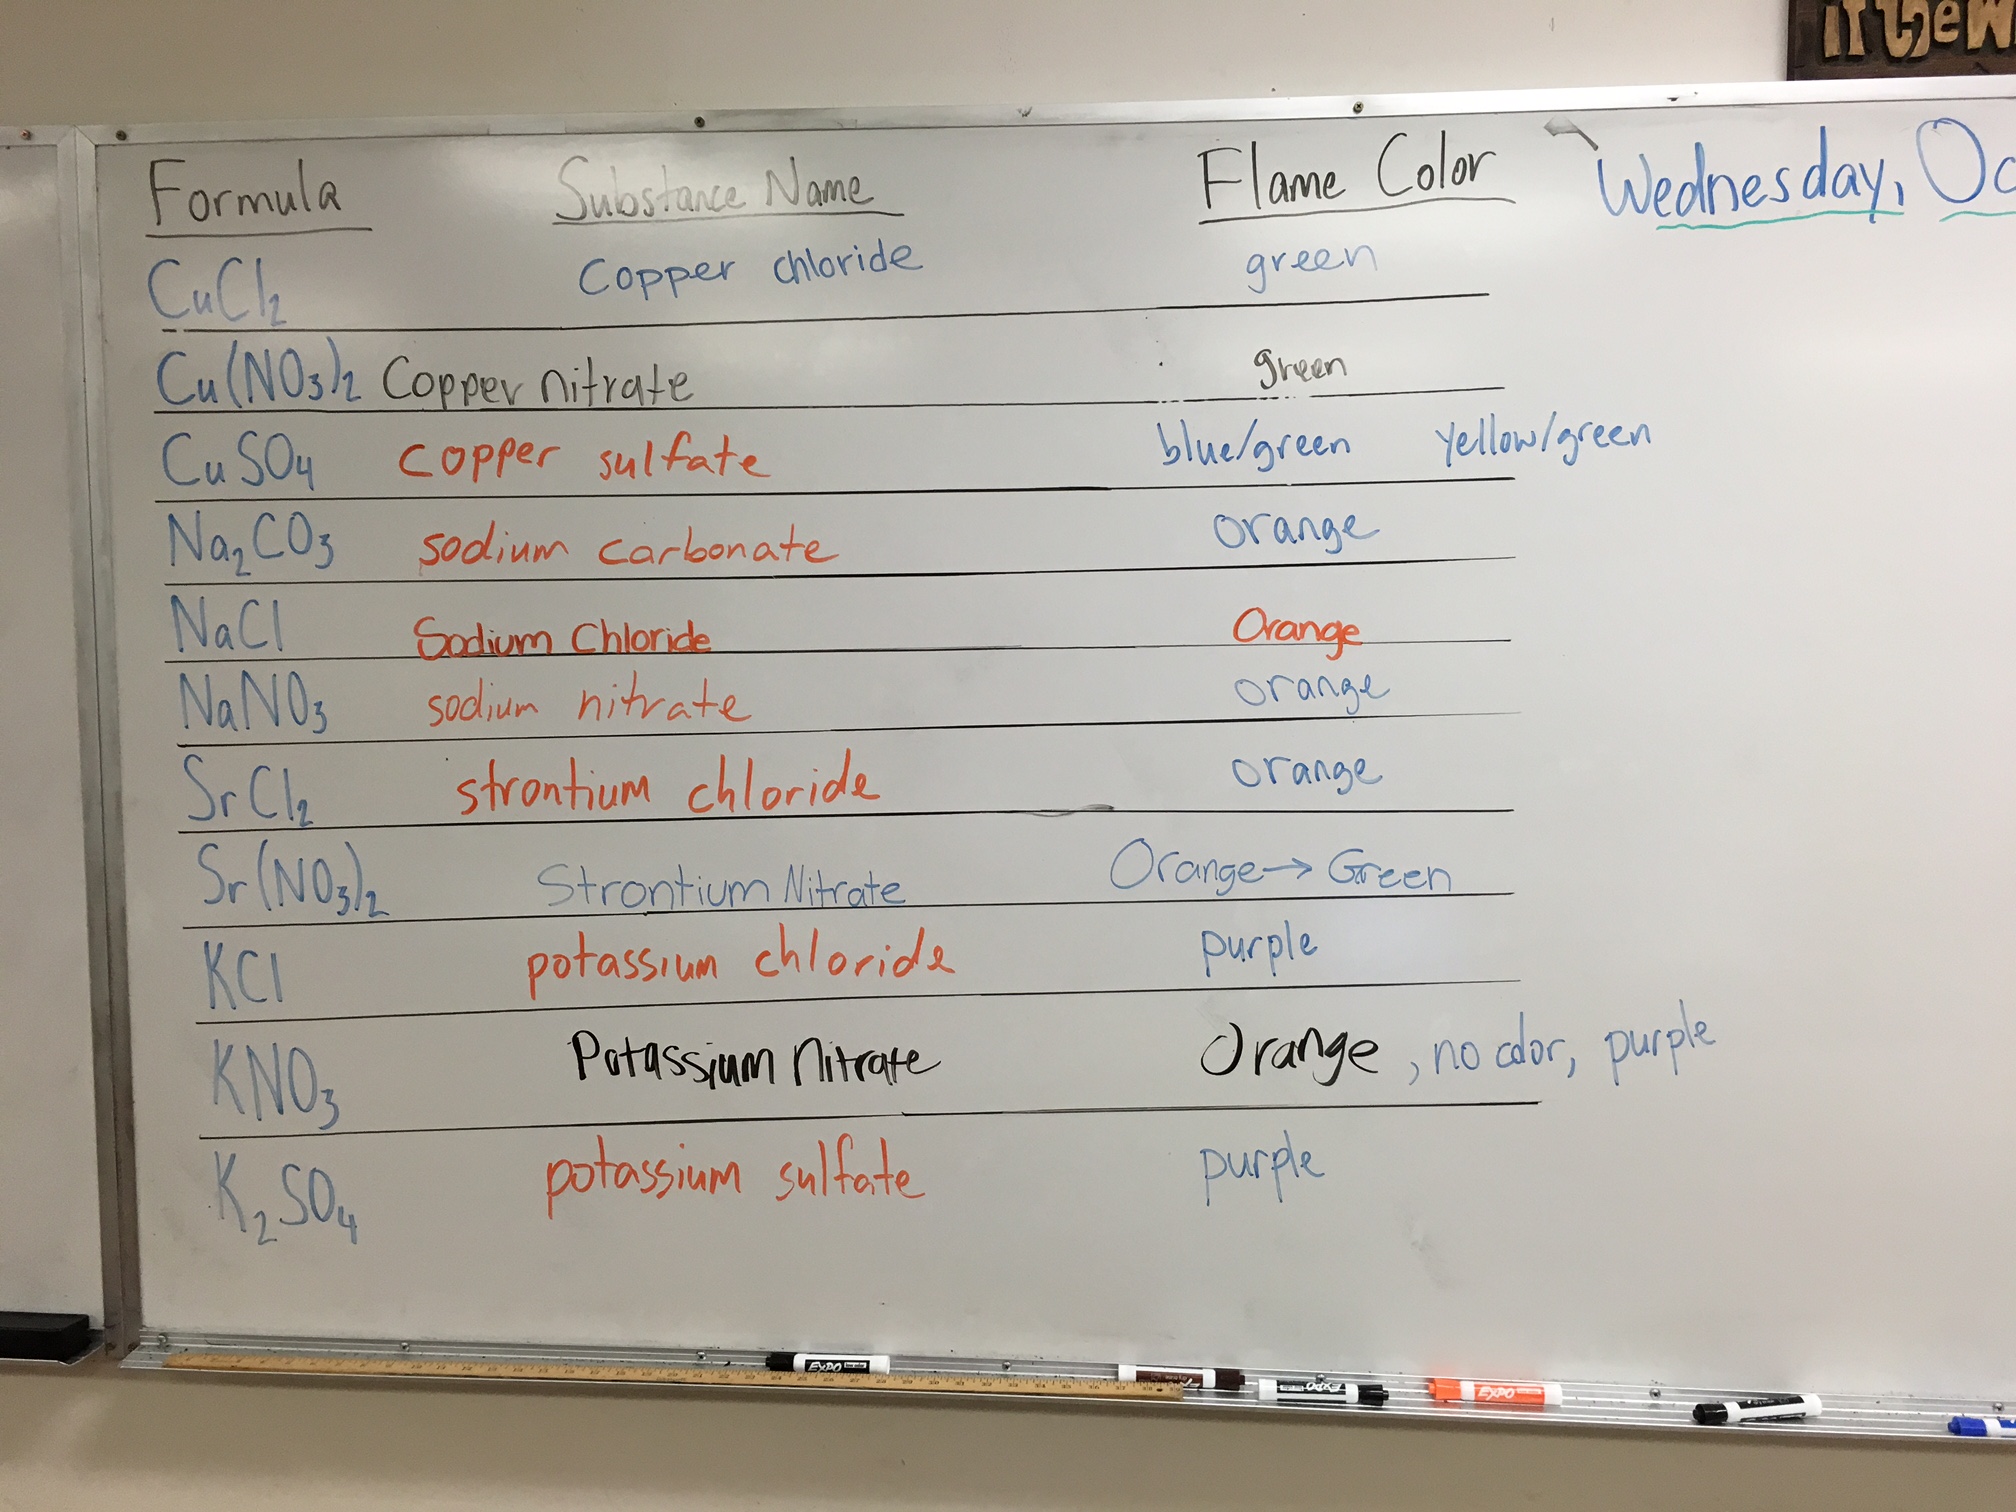 if the w
Formula Substance Name Flame Color Wednesday, Oc
CuCl₂ Copper chloride green
Cu(NO₃)₂ Copper nitrate green
CuSO₄ copper sulfate blue/green yellow/green
Na₂CO₃ sodium carbonate orange
NaCl Sodium Chloride Orange
NaNO₃ sodium nitrate orange
SrCl₂ strontium chloride orange
Sr(NO₃)₂ Strontium Nitrate Orange → Green
KCl potassium chloride purple
KNO₃ Potassium Nitrate Orange, no color, purple
K₂SO₄ potassium sulfate purple
EXPO
EXPO
EXPO